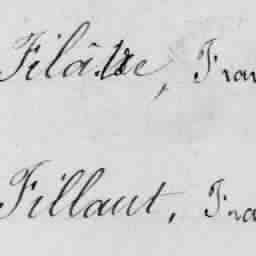 Filâtre, Fran
Fillaut, Fra